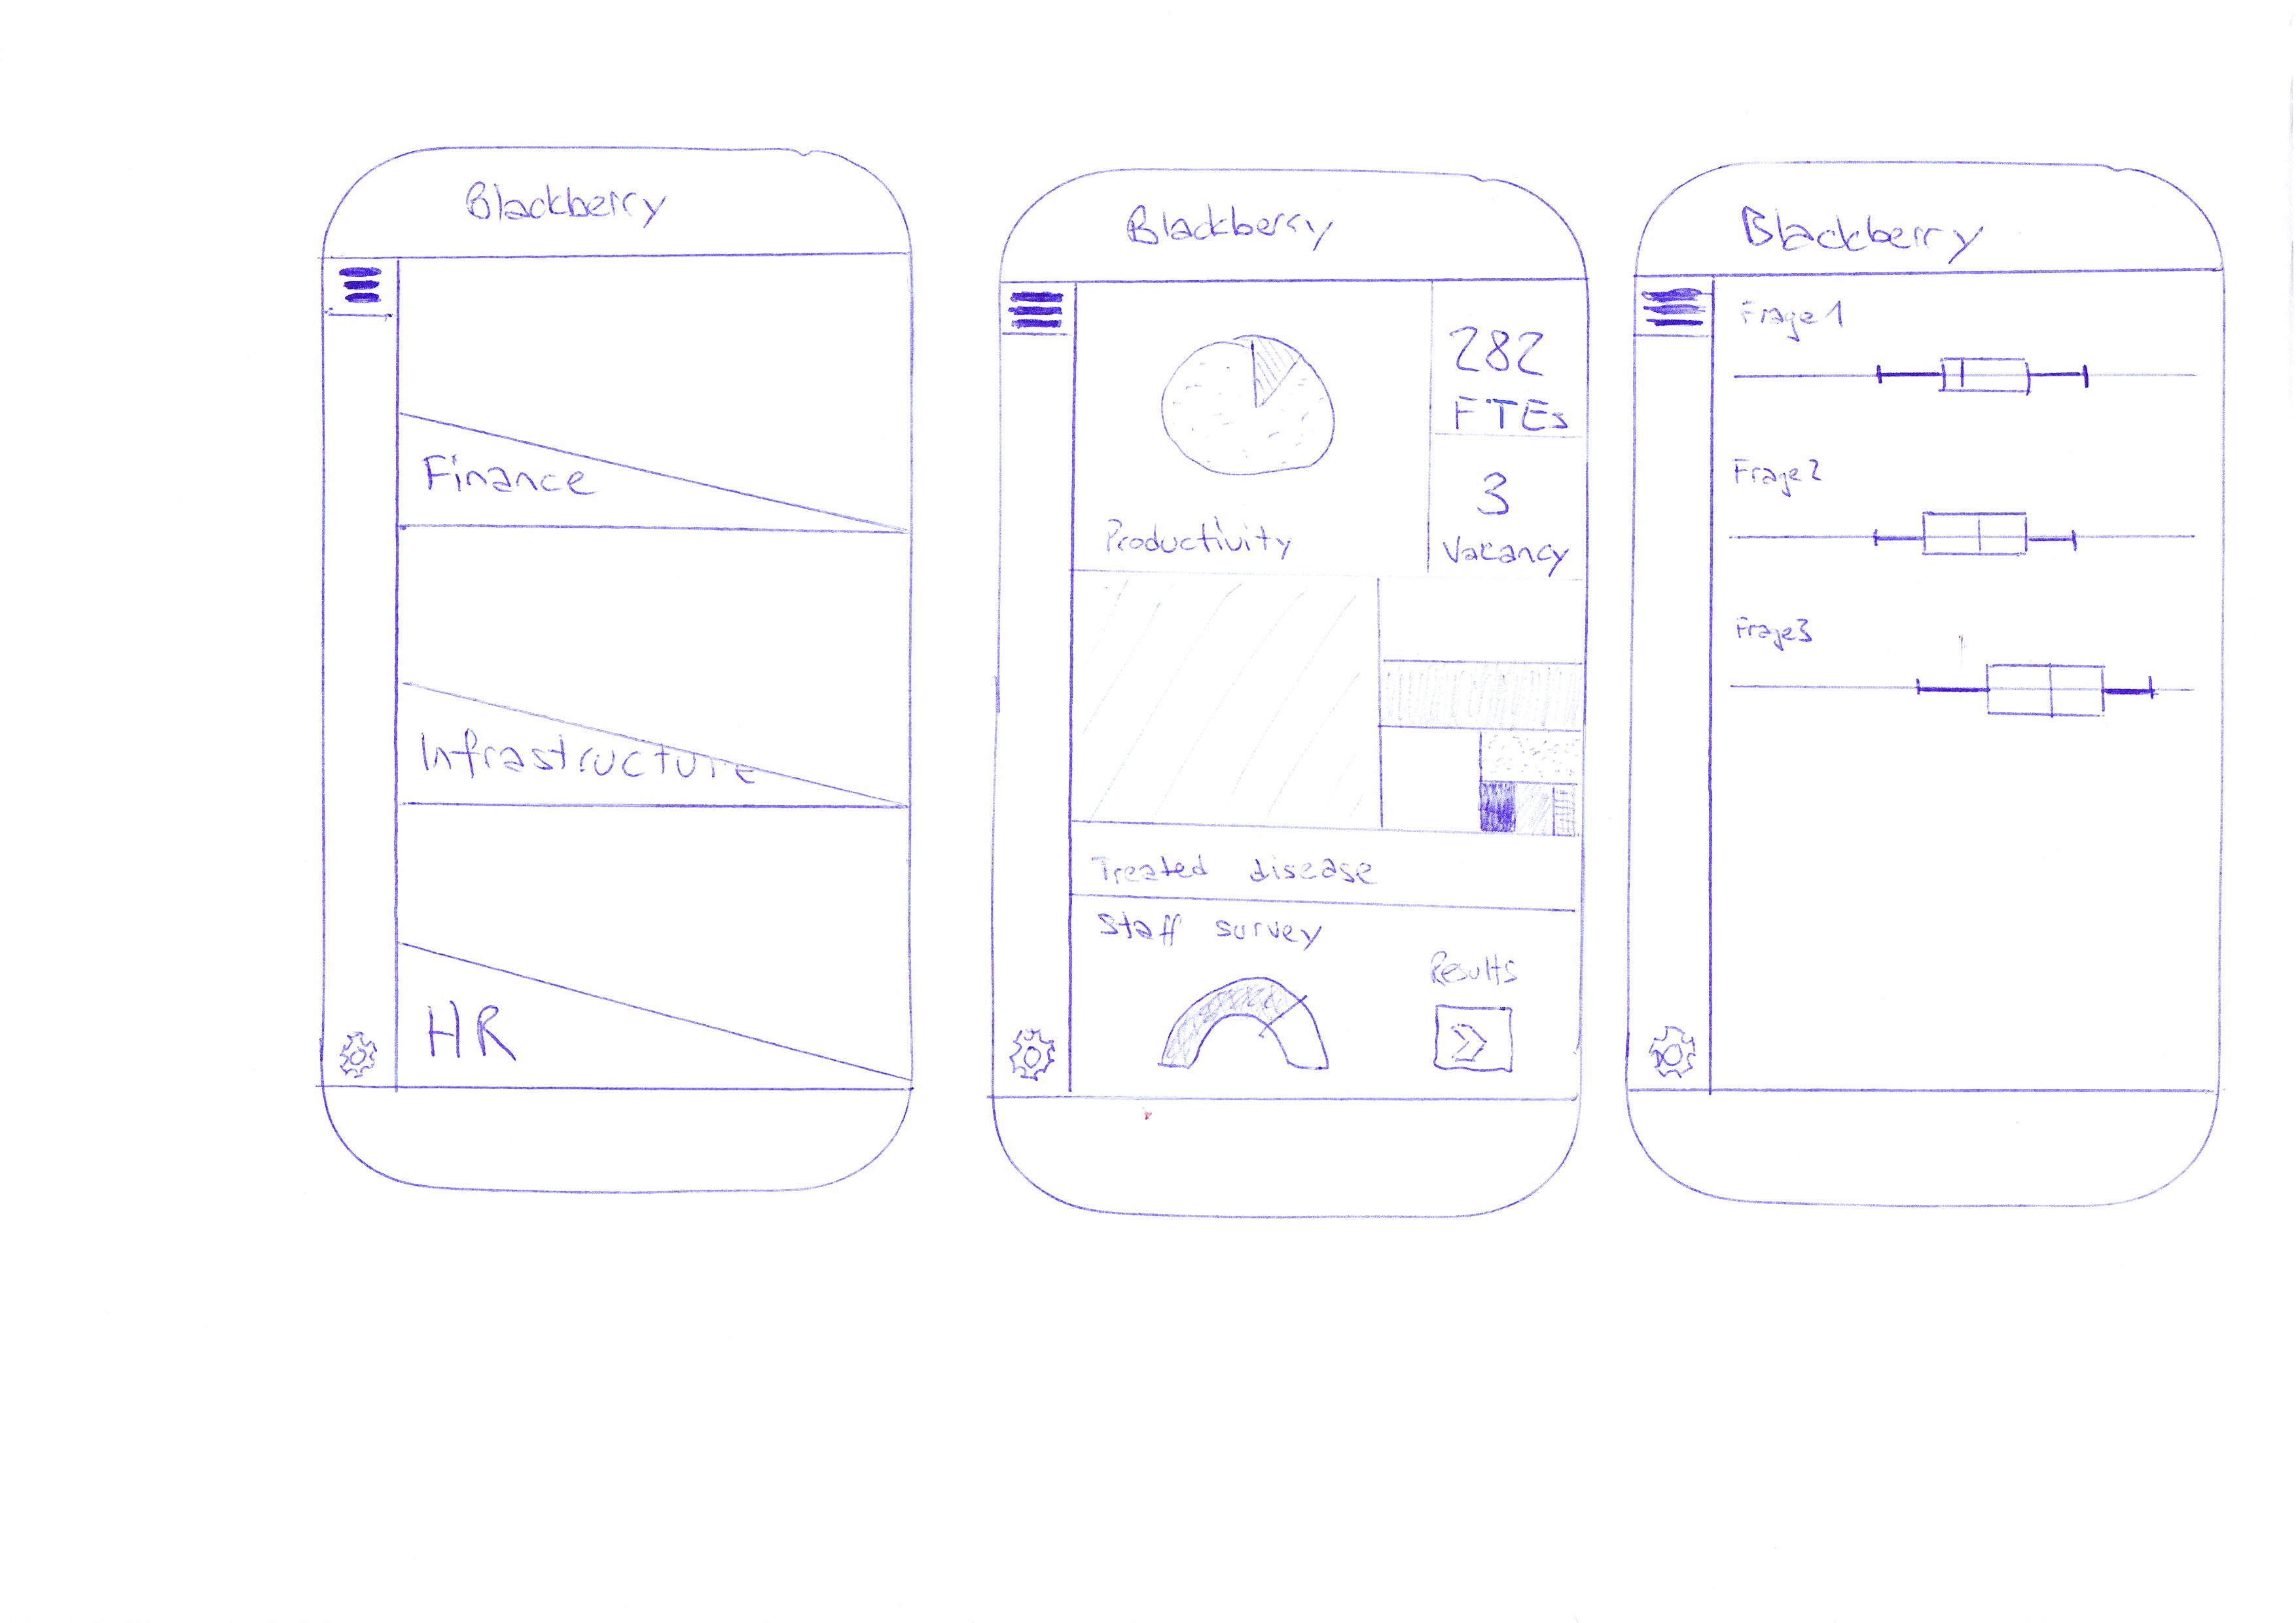 Blackberry
Finance
Infrastructure
HR
Blackberry
282
FTEs
3
Vacancy
Productivity
Treated disease
Staff survey
Results
Blackberry
Frage 1
Frage 2
Frage 3